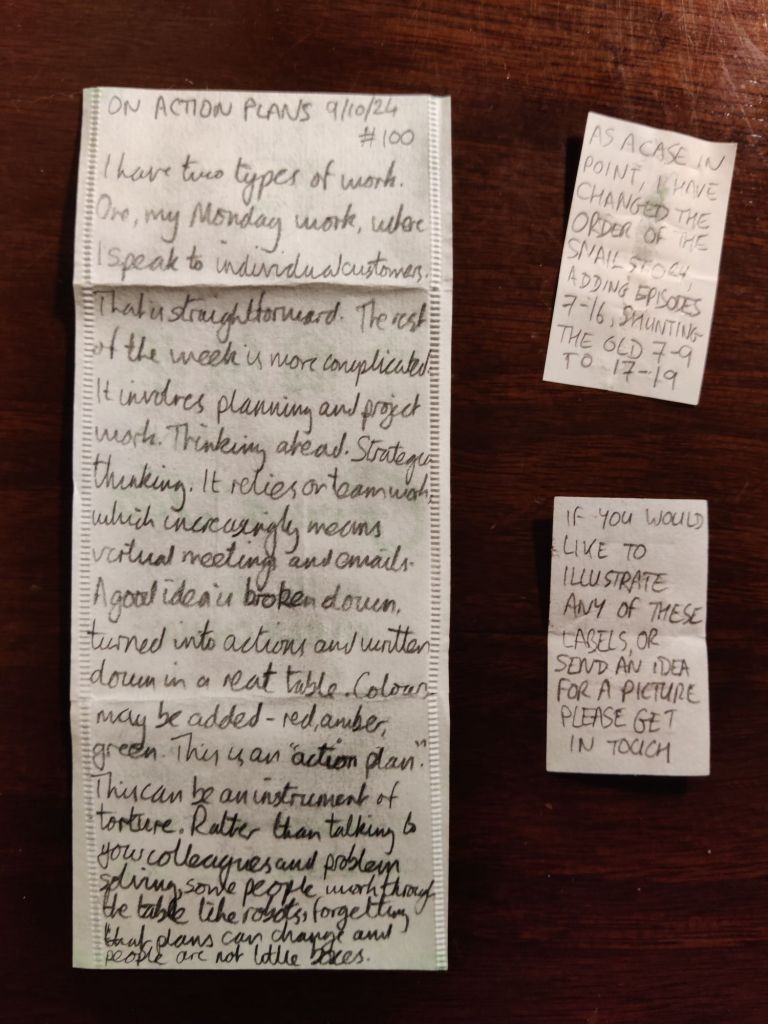 ON ACTION PLANS 9/10/24
#100
I have two types of work.
One, my Monday work, where
I speak to individual customers.
That is straightforward. The rest
of the week is more complicated.
It involves planning and project
work. Thinking ahead. Strategic
thinking. It relies on teamwork,
which increasingly means
virtual meetings and emails.
A good idea is broken down,
turned into actions and written
down in a neat table. Colours
may be added - red, amber,
green. This is an "action plan".
This can be an instrument of
torture. Rather than talking to
your colleagues and problem
solving, some people work through
the table like robots, forgetting
that plans can change and
people are not little boxes.
AS A CASE IN
POINT, I HAVE
CHANGED THE
ORDER OF THE
SNAIL STORY,
ADDING EPISODES
7-16, SHUNTING
THE OLD 7-9
TO 17-19
IF YOU WOULD
LIKE TO
ILLUSTRATE
ANY OF THESE
LABELS, OR
SEND AN IDEA
FOR A PICTURE
PLEASE GET
IN TOUCH